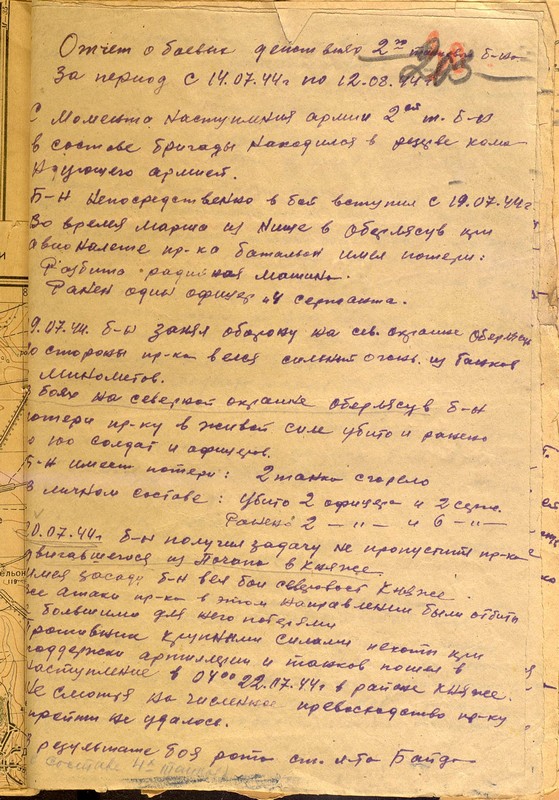 Отчет о боевых действиях 2го танков. б-на
203
За период с 14.07.44г по 12.08.44г.
С момента наступления армии 2ой т. б-н
в составе бригады находился в резерве кома-
ндующего армией.
Б-н непосредственно в бой вступил с 19.07.44г
Во время марша из Нище в Оберлясув при
авионалете пр-ка батальон имел потери:
Разбита радийная машина.
Ранен один офицер и 4 сержанта.
9.07.44г. б-н занял оборону на сев. окраине Оберлясув
со стороны пр-ка велся сильный огонь из танков
минометов.
В боях на северной окраине Оберлясув б-н
потери пр-ку в живой силе убито и ранено
о 100 солдат и офицеров.
Б-н имеет потери: 2 танка сгорело
В личном составе: убито 2 офицера и 2 серж.
Ранено 2 —„— и 6 —„—
20.07.44г. б-н получил задачу не пропустить пр-ка
двигавшегося из в Княже.
Имея засаду б-н вел бои северовост. Княже.
Все атаки пр-ка в этом направлении были отбиты
с большими для него потерями
Противник крупными силами пехоты при
поддержки артиллерии и танков пошел в
наступление в 04 00 22.07.44г в районе Княже.
Не смотря на численное превосходство пр-ку
пройти не удалось.
В результате боя рота ст. л-та Байда
в составе 4х танков